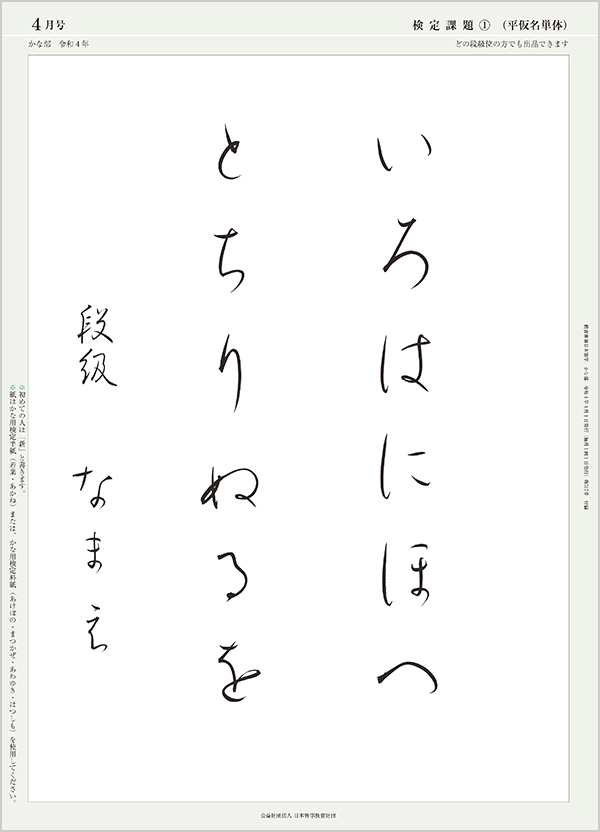 4月号
検定課題① (平仮名単体)
かな部 令和4年
どの段級位の方でも出品できます
いろはにほへ
とちりぬるを
段級 なまえ
※初めての人は「新」と書きます。
※紙はかな用検定半紙(若葉・あかね)または、かな用検定料紙(あけぼの・まつかぜ・あわゆき・はつしも)を使用してください。
公益財団法人 日本習字教育財団